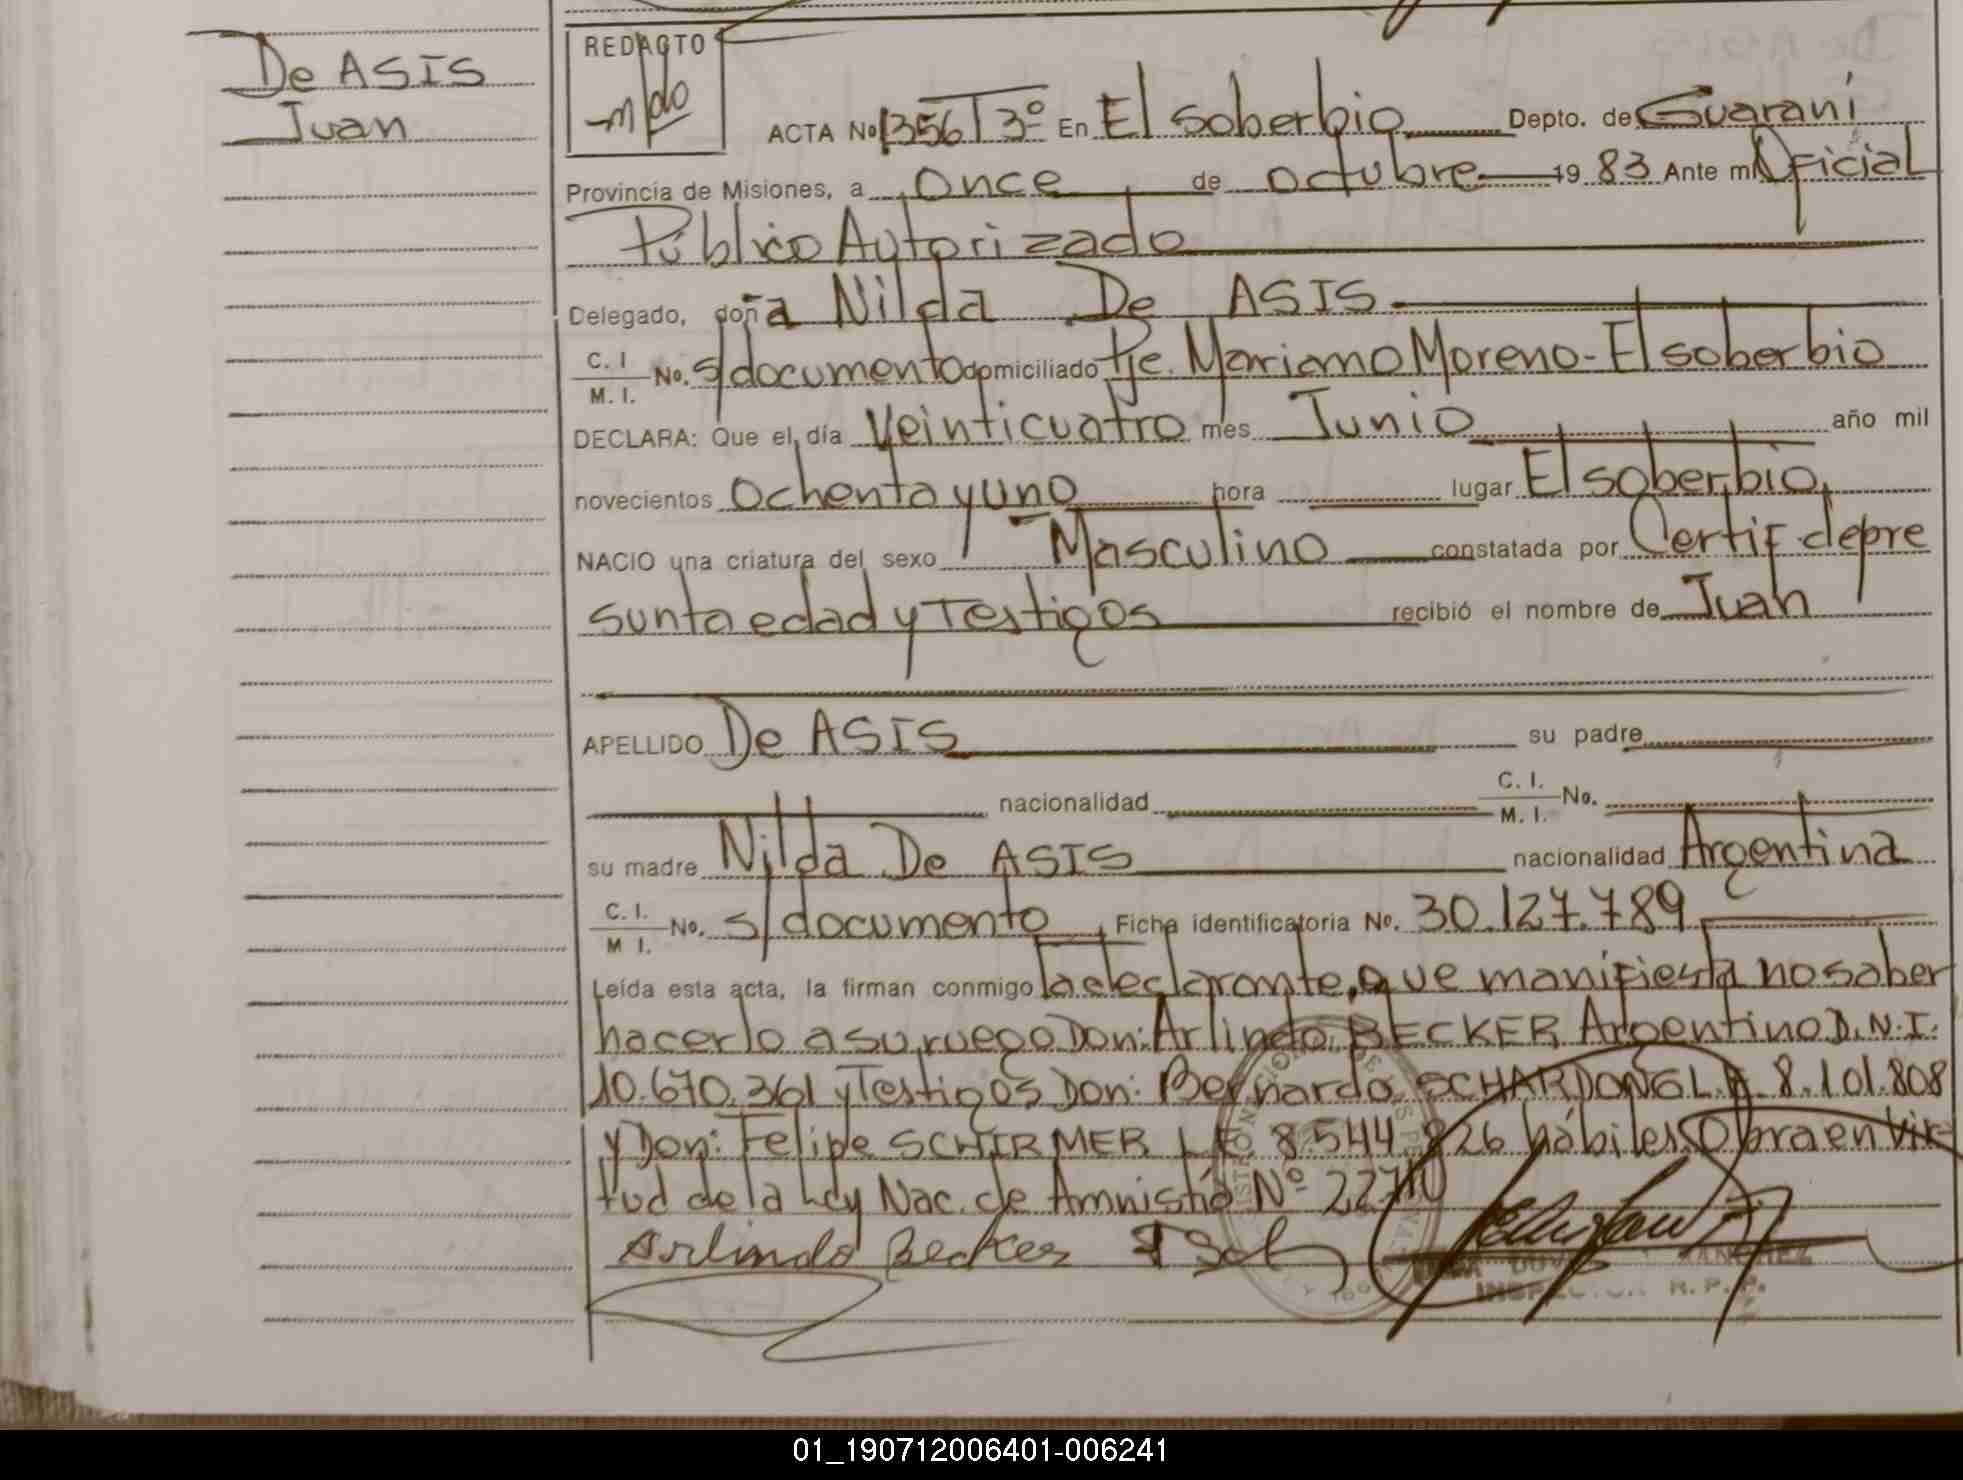 De ASIS
Juan
REDACTO
ACTA No 1356 T 3º En El soberbio Depto. de Guaraní
Provincia de Misiones, a once de octubre 19 83 Ante mi Oficial
Público Autorizado
Delegado, doña Nilda De ASIS
C. I. / M. I. No. s/documento domiciliado Pje. Mariano Moreno - El soberbio
DECLARA: Que el día Veinticuatro mes Junio año mil
novecientos ochenta y uno hora lugar El soberbio,
NACIO una criatura del sexo Masculino constatada por Certif de pre
sunta edad y Testigos recibió el nombre de Juan
APELLIDO De ASIS su padre
nacionalidad C. I. / M. I. No.
su madre Nilda De ASIS nacionalidad Argentina
C. I. / M I. No. s/documento, Ficha identificatoria No. 30.127.789
Leída esta acta, la firman conmigo la declarante, que manifiesta no saber
hacerlo a su ruego Don: Arlindo BECKER Argentino D.N.I.
10.670.361 y Testigos Don: Bernardo SCHARDONG L.E 8.101.808
y Don: Felipe SCHIRMER L.E. 8.544.826 hábiles Obra en vir
tud de la Ley Nac. de Amnistía Nº
Arlindo Becker
SANCHEZ
INSPECTOR R. P. P.
01_190712006401-006241